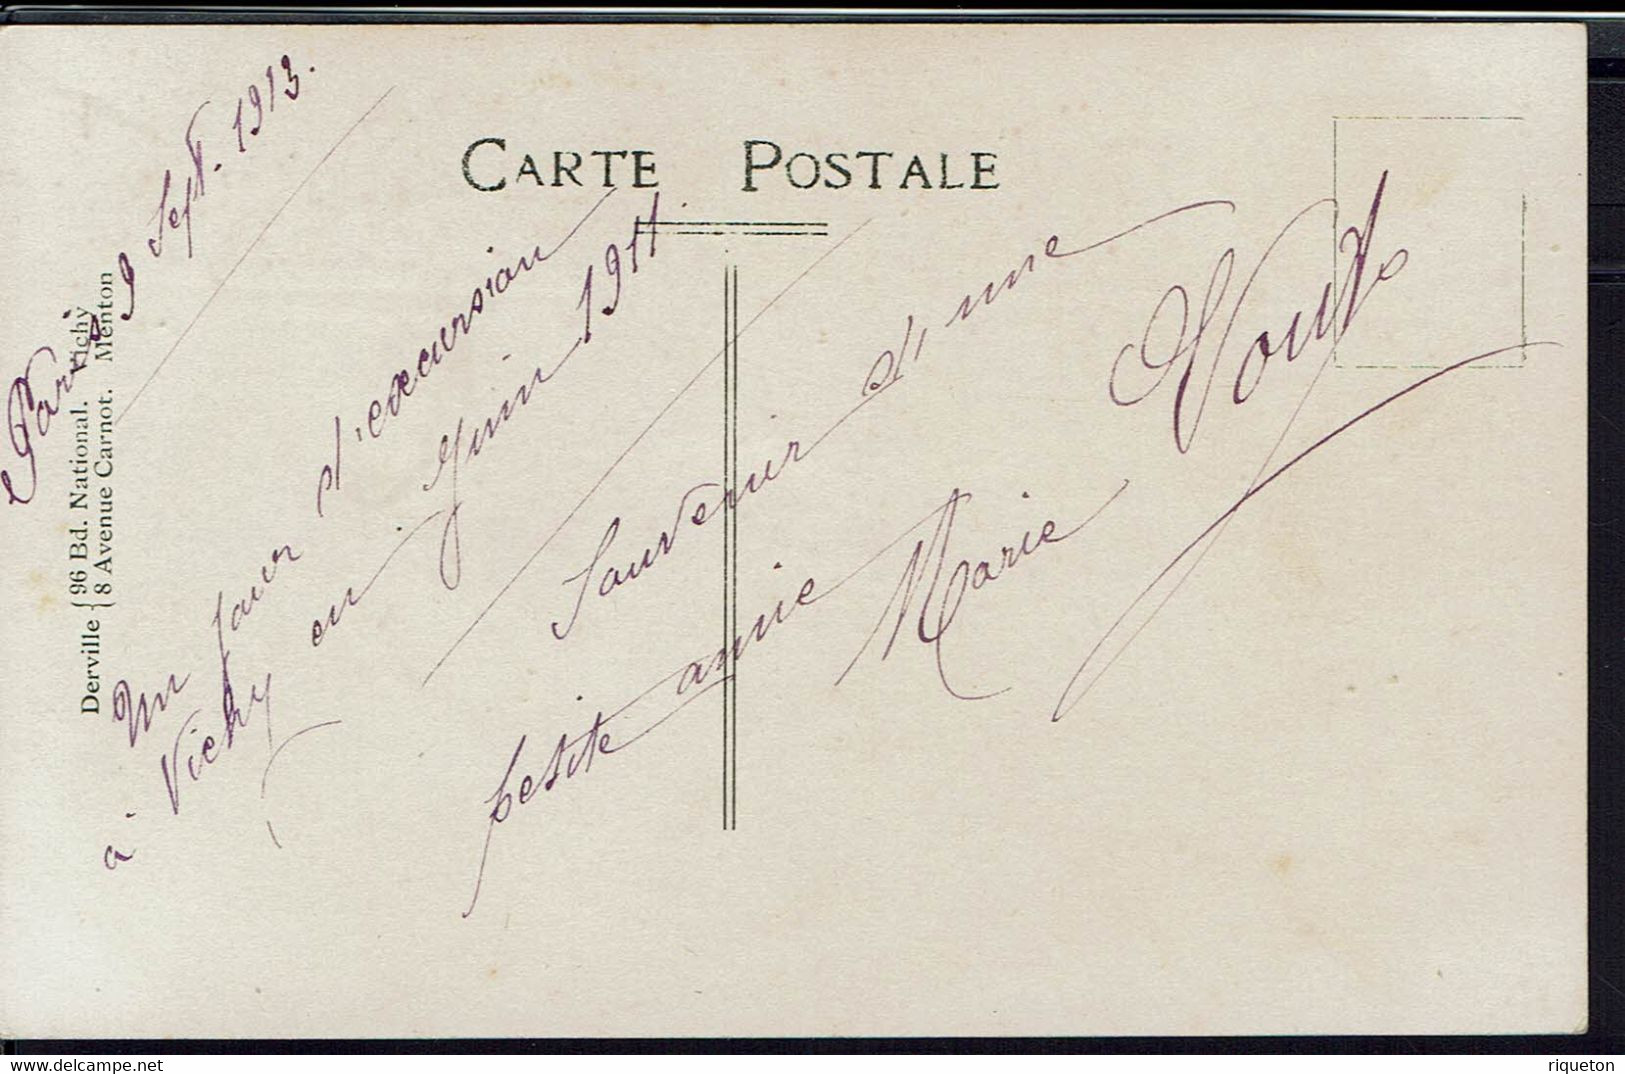 CARTE POSTALE
Derville { 96 Bd. National. Vichy
8 Avenue Carnot. Menton
Paris 9 Sept. 1913.
Un jour d'excursion
à Vichy en Juin 1911.
Souvenir d'une
petite amie Marie
riqueton